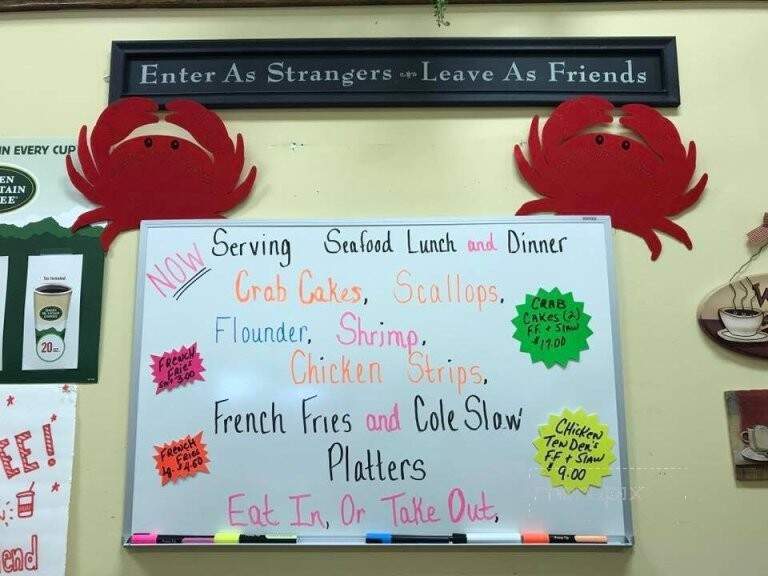 Enter As Strangers Leave As Friends
IN EVERY CUP
EN
TAIN
EE
20 oz.
EE!
end
NOW Serving Seafood Lunch and Dinner
Crab Cakes, Scallops,
Flounder, Shrimp,
Chicken Strips,
French Fries and Cole Slaw
Platters
Eat In, Or Take Out,
CRAB
CAKES (2)
F.F. + SLAW
$17.00
FRENCH
FRIES
3.00
FRENCH
FRIES
lg. $4.50
CHICKEN
TENDER'S
FF + SLAW
$9.00